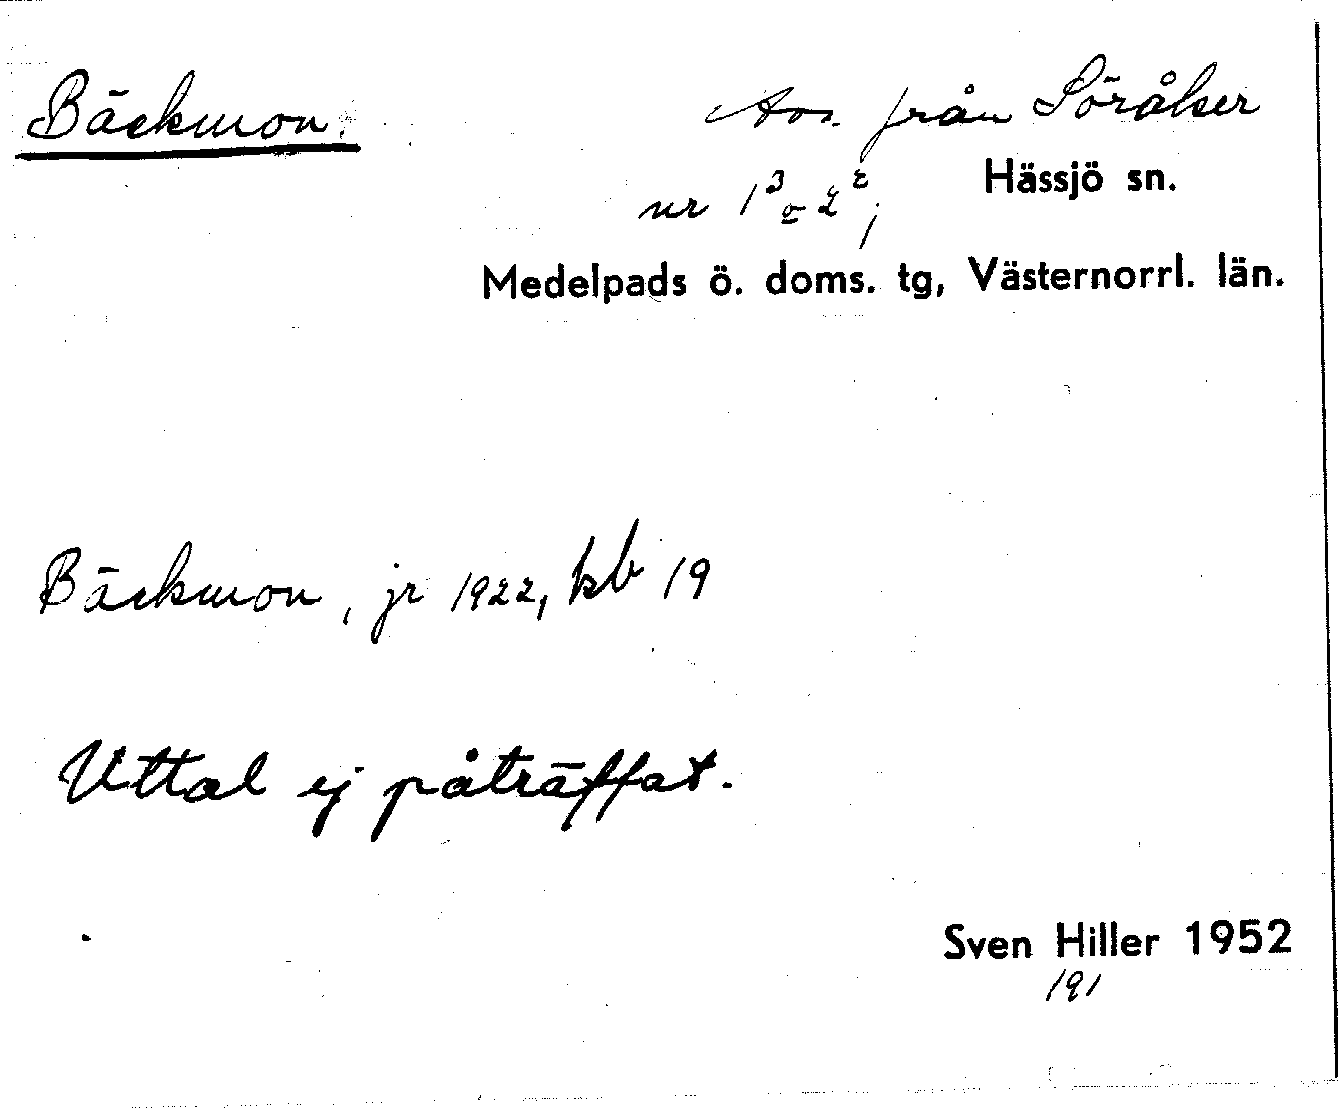 Bäckmon. Avs. från Söråker
nr 1³ o 2²; Hässjö sn.
Medelpads ö. doms. tg, Västernorrl. län.
Bäckmon, jr 1922, kb 19
Uttal ej påträffat.
Sven Hiller 1952
191